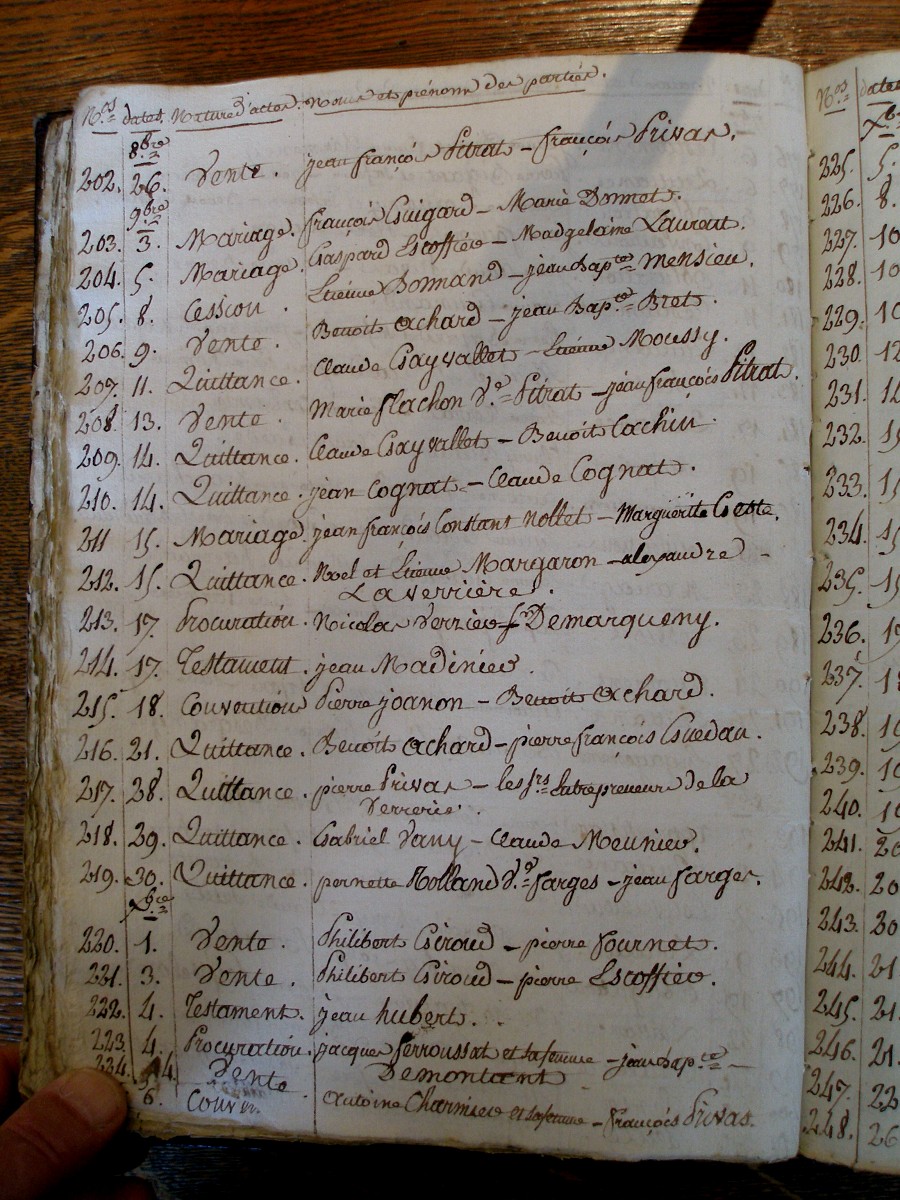 N.os dates. Nature d'actes. Noms et prénoms des parties.
8bre
202. 26. Vente. jean françois Pitrat - françois Privas.
9bre
203. 3. Mariage. françois Guigard - Marie Donnet.
204. 5. Mariage. Gaspard Escoffier - Madgelaine Laurent.
205. 8. Cession. Etienne Bonnand - jean Bap.te Mensieu.
206. 9. Vente. Benoit Achard - jean Bap.te Bret.
207. 11. Quittance. Claude Gayvallet - Etienne Moussy.
208. 13. Vente. Marie flachon V.e Pitrat - jean françois Pitrat.
209. 14. Quittance. Claude Gayvallet - Benoit Cachin.
210. 14. Quittance. jean Cognat - Claude Cognat.
211 15. Mariage. jean françois Constant Nollet - Marguerite Coste.
212. 15. Quittance. Noel et Etienne Margaron - alexandre -
Laverriere.
213. 17. Procuration. Nicolas Verrier Demarqueny.
214. 17. Testament. jean Madinier.
215. 18. Convention Pierre joanon - Benoit Achard.
216. 21. Quittance. Benoit Achard - pierre françois Guedan.
217. 28. Quittance. pierre Privas - les Srs Entrepreneurs de la
Verrerie.
218. 29. Quittance. Gabriel Vany - Claude Meunier.
219. 30. Quittance. pernette Rolland V.e farges - jean farges.
Xbre
220. 1. Vente. Philibert Giroud - pierre fournet.
221. 3. Vente. Philibert Giroud - pierre Escoffier.
222. 4. Testament. jean hubert.
223 4. Procuration. jacques ferroussat et sa femme - jean Bap.te -
224. Vente Demontant
6. Conven. Antoine Charmier et sa femme - françois Privas.
N.os dates
Xbre
225. 5.
226. 8.
227. 10
228. 10
229. 10
230. 12
231. 12
232. 15
233. 15
234. 15
235. 15
236. 17
237. 18
238. 19
239. 19
240. 19
241. 20
242. 20
243. 20
244. 21
245. 21.
246. 21.
247. 22
248. 26